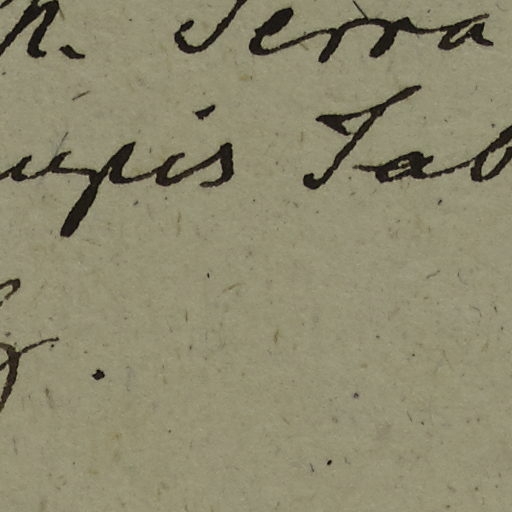 h. Serra
upis Tab